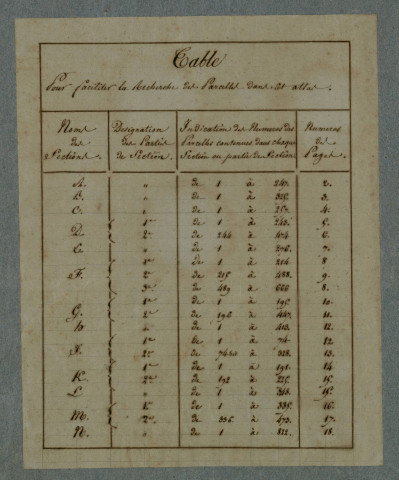 Table
Pour faciliter la Recherche des Parcelles dans cet atlas.
Noms des Sections | Désignation des Parties de Section | Indication des Numéros des Parcelles contenues dans chaque Section ou partie de Section | Numéros des Pages.
A. " de 1 à 247. 2.
B. " de 1 à 3.
C. " de 1 à 257. 4.
1re de 1 à 243. 5.
D. 2e de 244 à 474 6.
E. " de 1 à 276. 7.
1re de 1 à 214 8
F. 2e de 215 à 488. 9.
3e de 489 à 666 8.
1re de 1 à 195 10.
G. 2e de 196 à 447. 11.
H " de 1 à 413. 12.
1re de 1 à 74 12.
J. 2e de à 328. 13.
1re de 1 à 191. 14
K. 2e de 192 à 225. 15.
L " de 1 à 15.
1re de 1 à 335. 16
M. 2e de 336 à 473. 17.
N. " de 1 à 18.